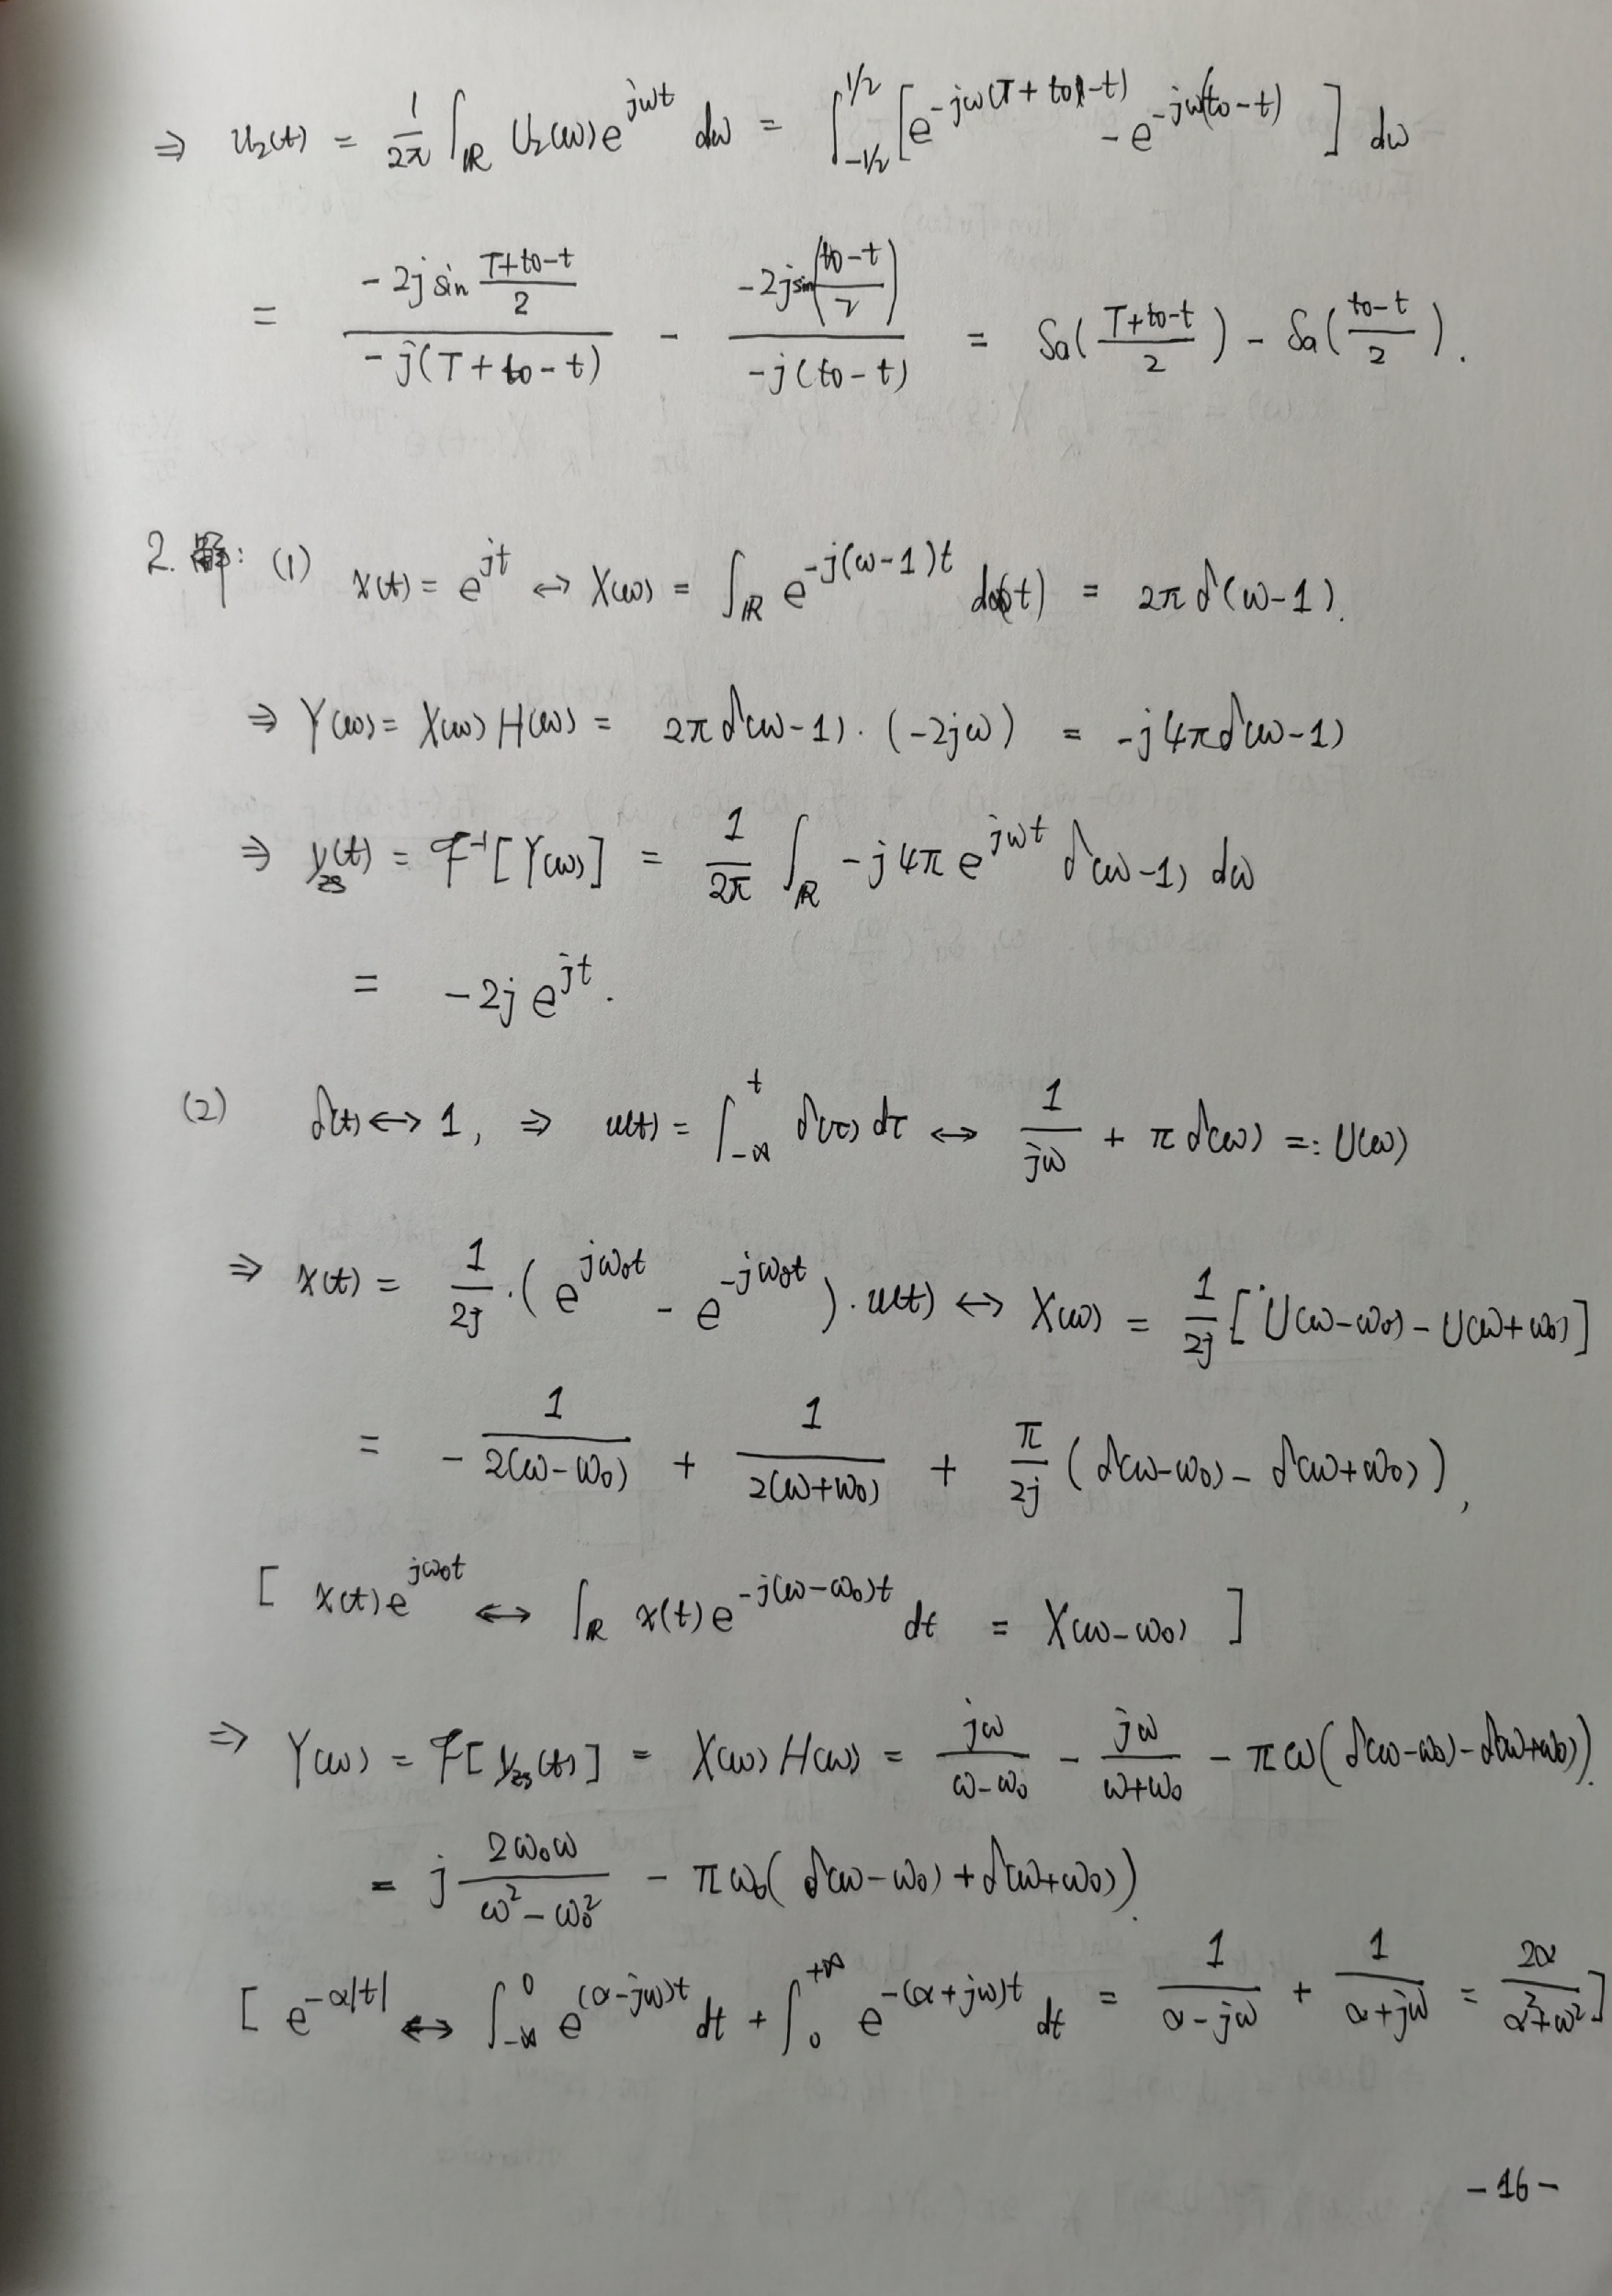 ⇒ u₂(t) = \frac{1}{2π} ∫_ℝ U₂(ω) e^{jωt} dω = ∫_{-1/2}^{1/2} [ e^{-jω(T+t₀-t)} - e^{-jω(t₀-t)} ] dω
= \frac{-2j sin \frac{T+t₀-t}{2}}{-j(T+t₀-t)} - \frac{-2j sin(\frac{t₀-t}{2})}{-j(t₀-t)} = Sa(\frac{T+t₀-t}{2}) - Sa(\frac{t₀-t}{2}).
2. 解: (1) x(t) = e^{jt} ↔ X(ω) = ∫_ℝ e^{-j(ω-1)t} d(t) = 2πδ(ω-1).
⇒ Y(ω) = X(ω) H(ω) = 2πδ(ω-1)·(-2jω) = -j4πδ(ω-1)
⇒ y_{zs}(t) = ℱ^{-1}[Y(ω)] = \frac{1}{2π} ∫_ℝ -j4π e^{jωt} δ(ω-1) dω
= -2j e^{jt}.
(2) δ(t) ↔ 1, ⇒ u(t) = ∫_{-∞}^{t} δ(τ) dτ ↔ \frac{1}{jω} + πδ(ω) =: U(ω)
⇒ x(t) = \frac{1}{2j}·( e^{jω₀t} - e^{-jω₀t} )·u(t) ↔ X(ω) = \frac{1}{2j} [ U(ω-ω₀) - U(ω+ω₀) ]
= - \frac{1}{2(ω-ω₀)} + \frac{1}{2(ω+ω₀)} + \frac{π}{2j} ( δ(ω-ω₀) - δ(ω+ω₀) ),
[ x(t) e^{jω₀t} ↔ ∫_ℝ x(t) e^{-j(ω-ω₀)t} dt = X(ω-ω₀) ]
⇒ Y(ω) = ℱ[y_{zs}(t)] = X(ω) H(ω) = \frac{jω}{ω-ω₀} - \frac{jω}{ω+ω₀} - πω( δ(ω-ω₀) - δ(ω+ω₀) ).
= j \frac{2ω₀ω}{ω²-ω₀²} - πω₀( δ(ω-ω₀) + δ(ω+ω₀) ).
[ e^{-α|t|} ↔ ∫_{-∞}^{0} e^{(α-jω)t} dt + ∫_{0}^{+∞} e^{-(α+jω)t} dt = \frac{1}{α-jω} + \frac{1}{α+jω} = \frac{2α}{α²+ω²} ]
-16-